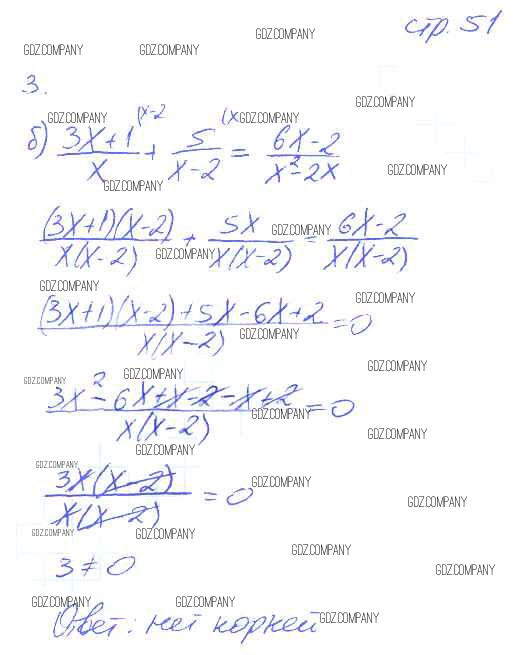 стр. 51
GDZ.COMPANY GDZ.COMPANY GDZ.COMPANY
3.
GDZ.COMPANY
GDZ.COMPANY (x-2 (x GDZ.COMPANY
б) (3x+1)/x + 5/(x-2) = (6x-2)/(x²-2x)
GDZ.COMPANY GDZ.COMPANY
((3x+1)(x-2))/(x(x-2)) + 5x/(x(x-2)) = (6x-2)/(x(x-2))
GDZ.COMPANY GDZ.COMPANY
GDZ.COMPANY GDZ.COMPANY
((3x+1)(x-2)+5x-6x+2)/(x(x-2)) = 0
GDZ.COMPANY
GDZ.COMPANY GDZ.COMPANY GDZ.COMPANY
(3x²-6x+x-2-x+2)/(x(x-2)) = 0
GDZ.COMPANY GDZ.COMPANY
GDZ.COMPANY
GDZ.COMPANY GDZ.COMPANY
(3x(x-2))/(x(x-2)) = 0
GDZ.COMPANY
GDZ.COMPANY GDZ.COMPANY
GDZ.COMPANY
3 ≠ 0
GDZ.COMPANY
GDZ.COMPANY GDZ.COMPANY
Ответ: нет корней
GDZ.COMPANY